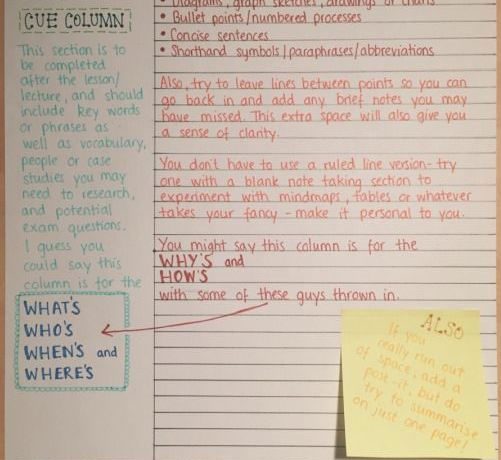 CUE COLUMN
This section is to
be completed
after the lesson/
lecture, and should
include key words
or phrases as
well as vocabulary,
people or case
studies you may
need to research,
and potential
exam questions.
I guess you
could say this
column is for the
WHAT'S
WHO'S
WHEN'S and
WHERE'S
• Diagrams, graph sketches, drawings or charts
• Bullet points/numbered processes
• Concise sentences
• Shorthand symbols/paraphrases/abbreviations
Also, try to leave lines between points so you can
go back in and add any brief notes you may
have missed. This extra space will also give you
a sense of clarity.
You don't have to use a ruled line version- try
one with a blank note taking section to
experiment with mindmaps, tables or whatever
takes your fancy - make it personal to you.
You might say this column is for the
WHY'S and
HOW'S
with some of these guys thrown in.
ALSO
If you
really run out
of space, add a
post-it, but do
try to summarise
on just one page!